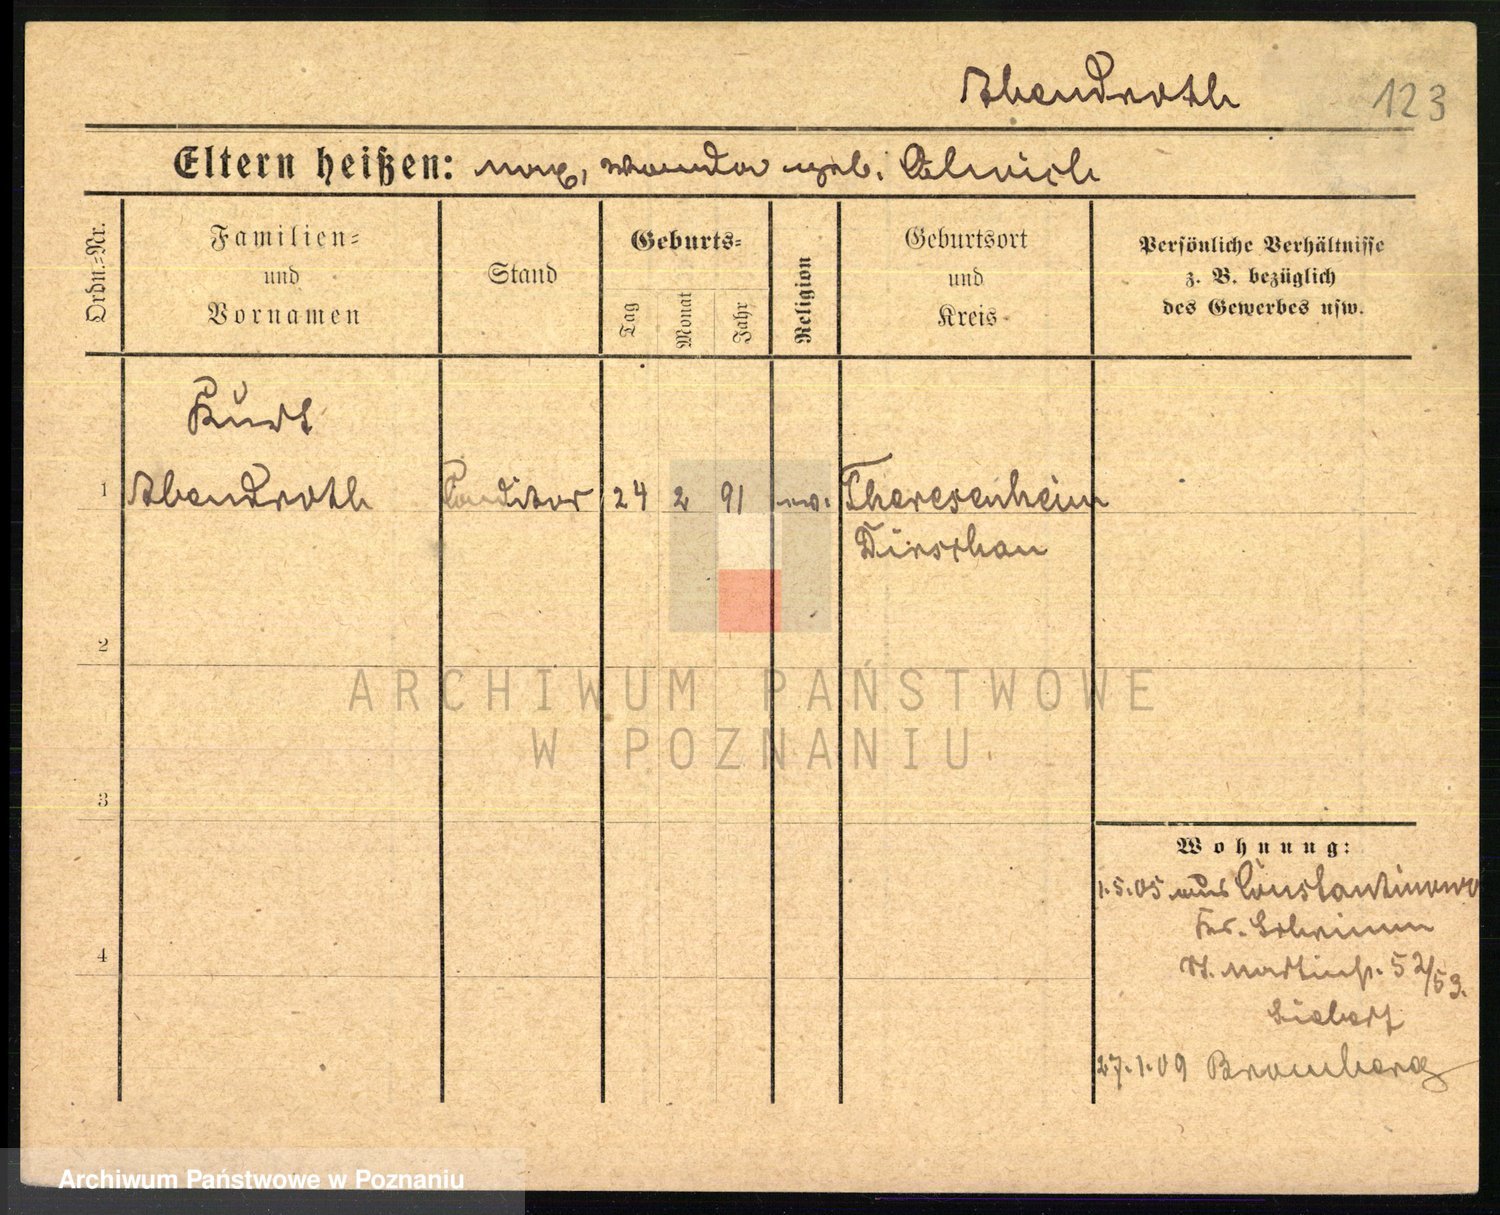 Abendroth
123
Eltern heißen: Max, Wanda geb. Ulrich
Ordn.-Nr.
Familien-
und
Vornamen
Stand
Geburts-
Tag
Monat
Jahr
Religion
Geburtsort
und
Kreis
Persönliche Verhältnisse
z. B. bezüglich
des Gewerbes usw.
Kurt
1 Abendroth Conditor 24 2 91 ev. Theresenheim
Dirschau
2
3
4
ARCHIWUM PAŃSTWOWE
W POZNANIU
Wohnung:
1.5.05 aus Constantinowo
Krs. Schrimm
St. Martinstr. 52/53.
Siebert
27.1.09 Bromberg
Archiwum Państwowe w Poznaniu